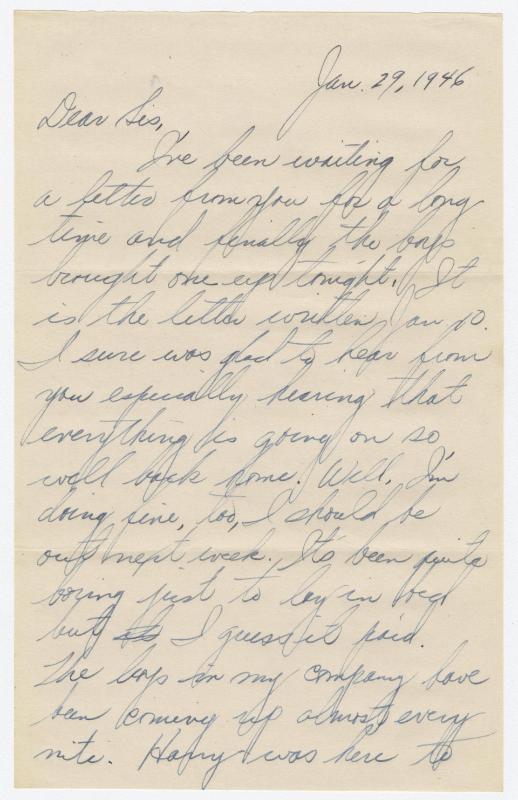 Jan. 29, 1946
Dear Sis,
I've been waiting for
a letter from you for a long
time and finally the boys
brought one up tonight. It
is the letter written Jan 10.
I sure was glad to hear from
you especially hearing that
everything is going on so
well back home. Well, I'm
doing fine, too, I should be
out next week. It's been quite
boring just to lay in bed
but I guess it paid.
The boys in my company have
been coming up almost every
nite. Harry was here to